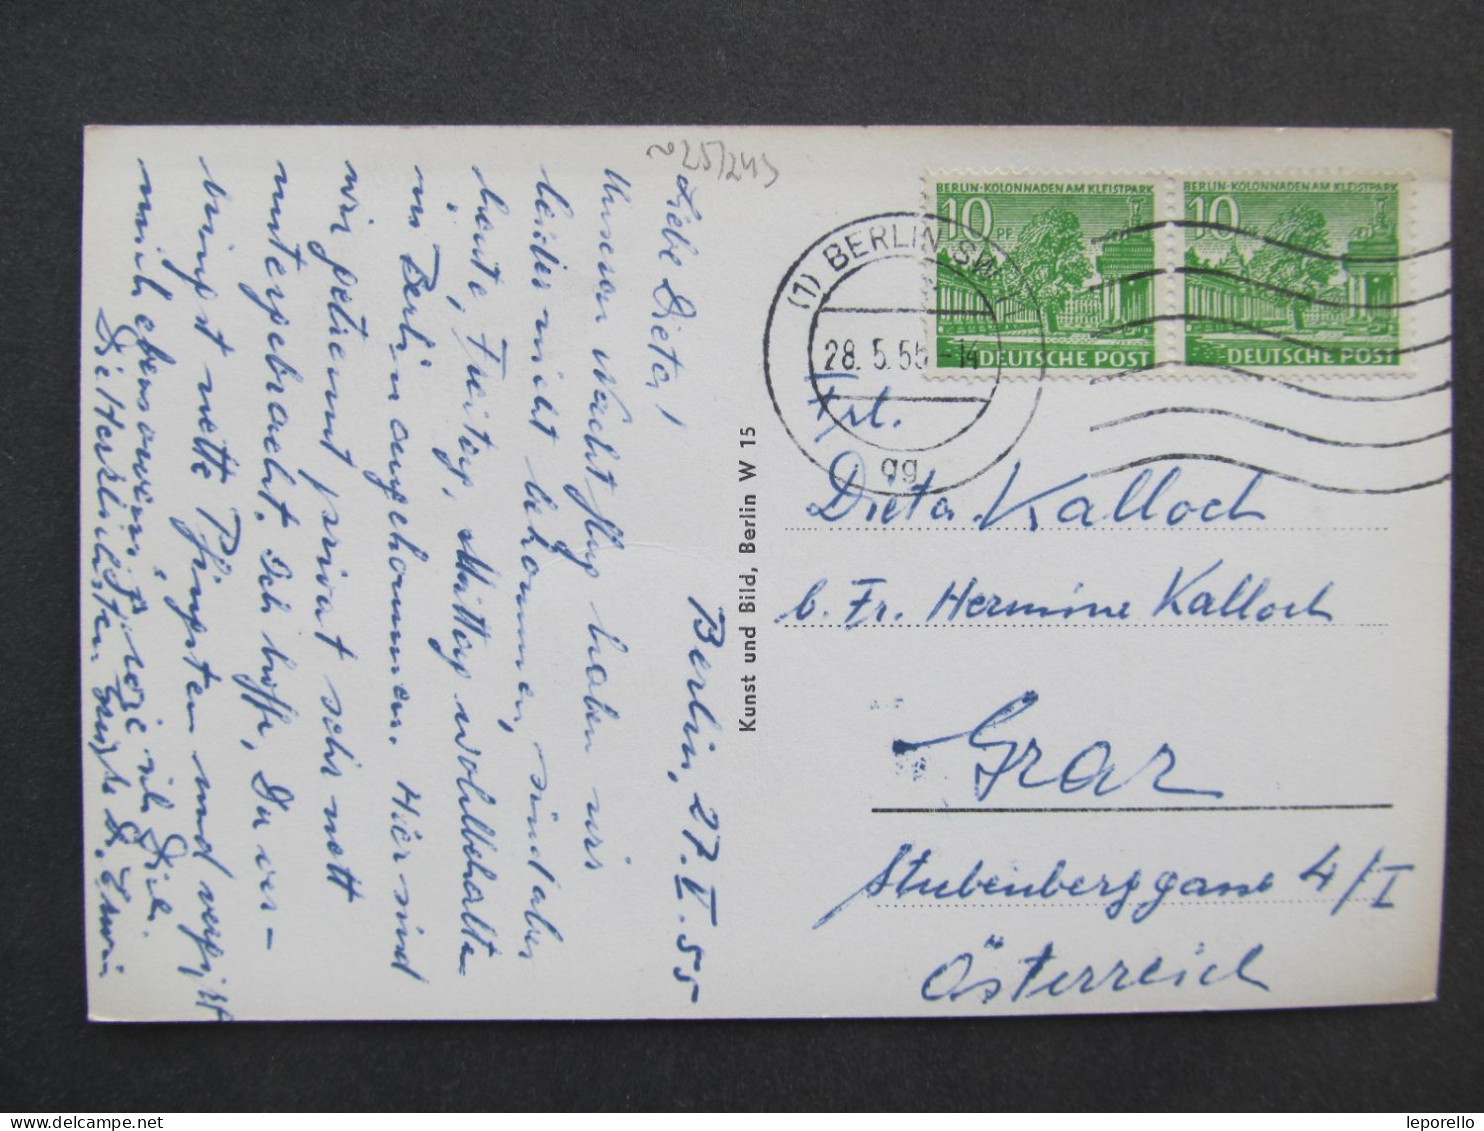 25/243
Berlin, 27.V.55
Liebe Dieta!
Unseren Nachtflug haben wir
leider nicht bekommen, sind aber
heute, Freitag, Mittag wohlbehalten
in Berlin angekommen. Hier sind
wir getrennt privat sehr nett
untergebracht. Ich hoffe, Du ver-
bringst nette Pfingsten und vergißt
mich ebensowenig wie ich Dich.
Die Herzlichsten Grüße D. Erwin
Kunst und Bild, Berlin W 15
BERLIN-KOLONNADEN AM KLEISTPARK
10 PF
DEUTSCHE POST
BERLIN-KOLONNADEN AM KLEISTPARK
10 PF
DEUTSCHE POST
(1) BERLIN SW 11
28. 5. 55 -14
gg
Frl.
Dieta Kalloch
b. Fr. Hermine Kalloch
Graz
Stubenberggasse 4/I
Österreich
leporello